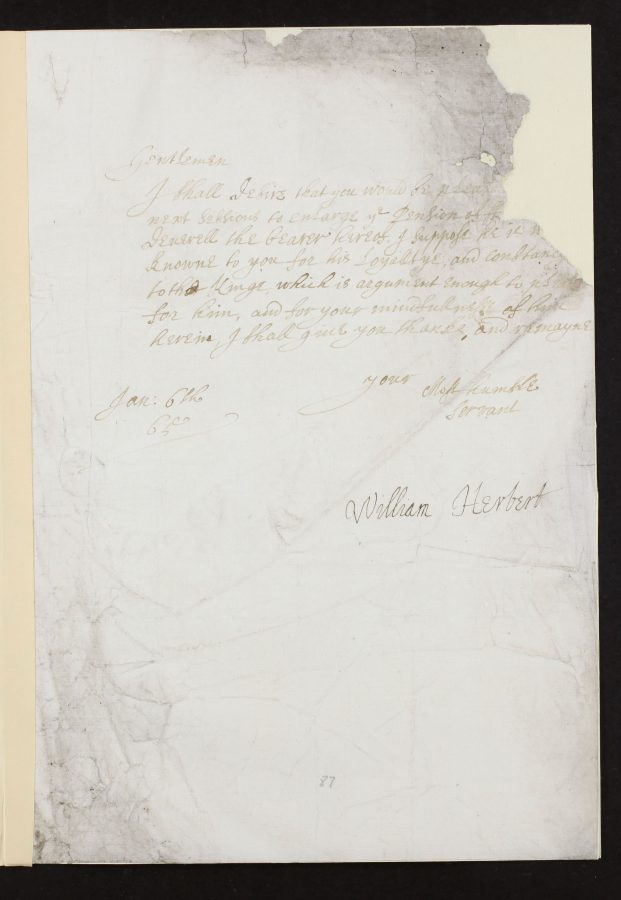 Gentlemen
I shall desire that you would be pleas
next Sessions to enlarge ye Pension of
Deverell the bearer hereof. I suppose he is
knowne to you for his Loyaltye, and constanc
to the Kinge which is argument enough to
for him, and for your mindfulnesse of him
herein, I shall give you thankes, and remayne
your Most humble
Servant
Jan: 6th
William Herbert
87